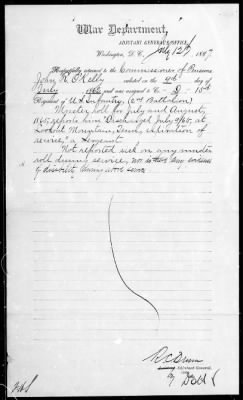 War Department,
ADJUTANT GENERAL'S OFFICE,
Washington, D. C., July 12, 1887
Respectfully returned to the Commissioner of Pensions
John K. O'Kelly enlisted on the day of
July 1862 and was assigned to Co. D 15th
Regiment of U.S. Infantry, (2nd Battalion)
Muster roll for July and August,
1865, reports him "Discharged July 9/65, at
Lookout Mountain, Tenn., expiration of
service," a Sergeant.
Not reported sick on any muster
roll during service, nor is there any evidence
of disability during service.
R C Drum
Adjutant General.